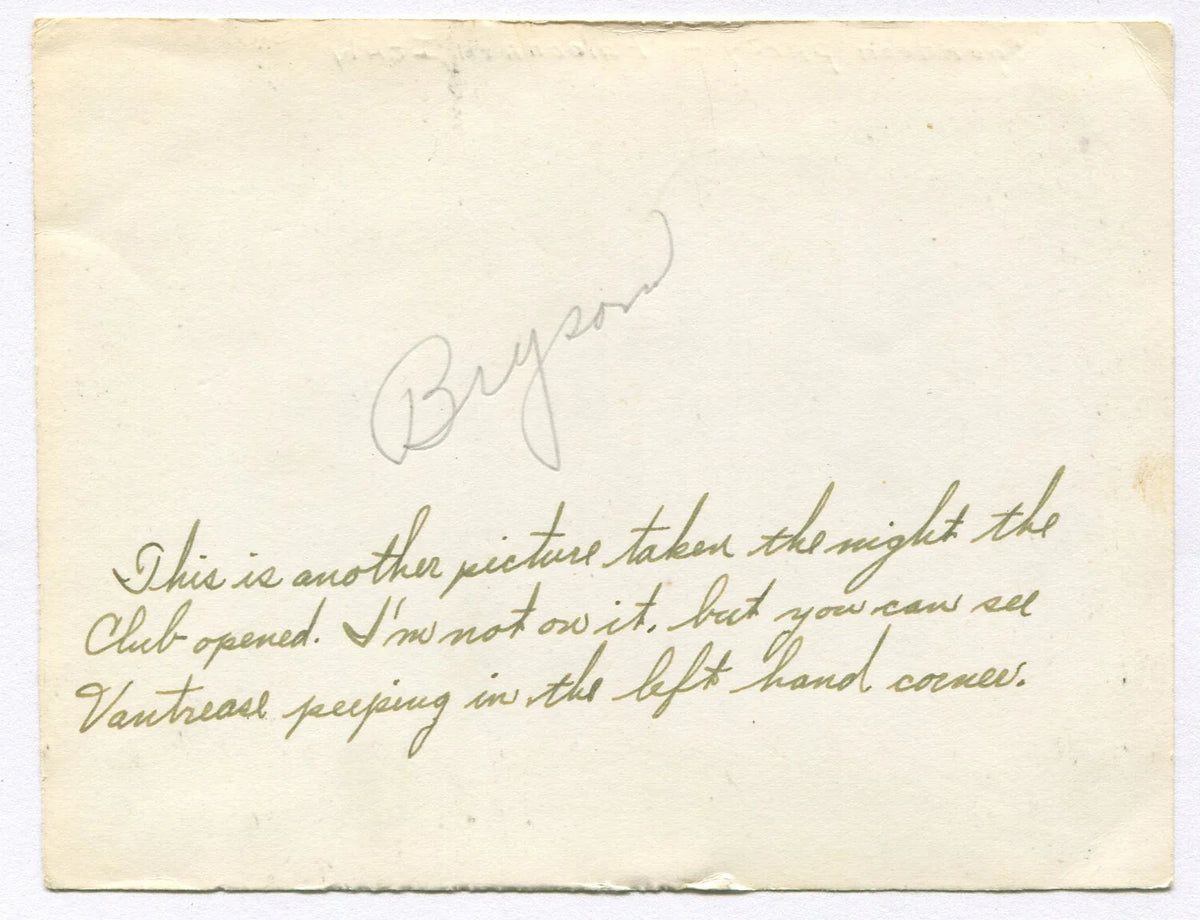 Bryson
This is another picture taken the night the
Club opened. I'm not on it, but you can see
Vantrease peeping in the left hand corner.